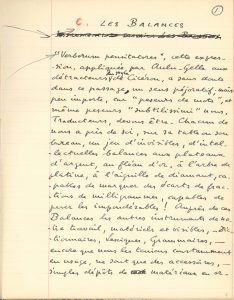 1
C. LES BALANCES
"Verborum pensitatores", cette expres-
sion, appliquée par Aulu-Gelle aux
détracteurs de Cicéron, a sans doute
dans ce passage un sens péjoratif, mais
peu importe, car "peseurs de mots", et
même peseurs "subtilissimi", nous,
Traducteurs, devons être. Chacun de
nous a près de soi, sur sa table ou son
bureau, un jeu d'invisibles, d'intel-
lectuelles balances aux plateaux
d'argent, au fléau d'or, à l'axe de
platine, à l'aiguille de diamant, ca-
pables de marquer des écarts de frac-
tions de milligrammes, capables de
peser les impondérables! Auprès de ces
Balances les autres instruments de no-
tre travail, matériels et visibles, – Dic-
tionnaires, Lexiques, Grammaires, –
encore que nous les tenions constamment
en usage, ne sont que des accessoires,
simples dépôts de matériaux en or-